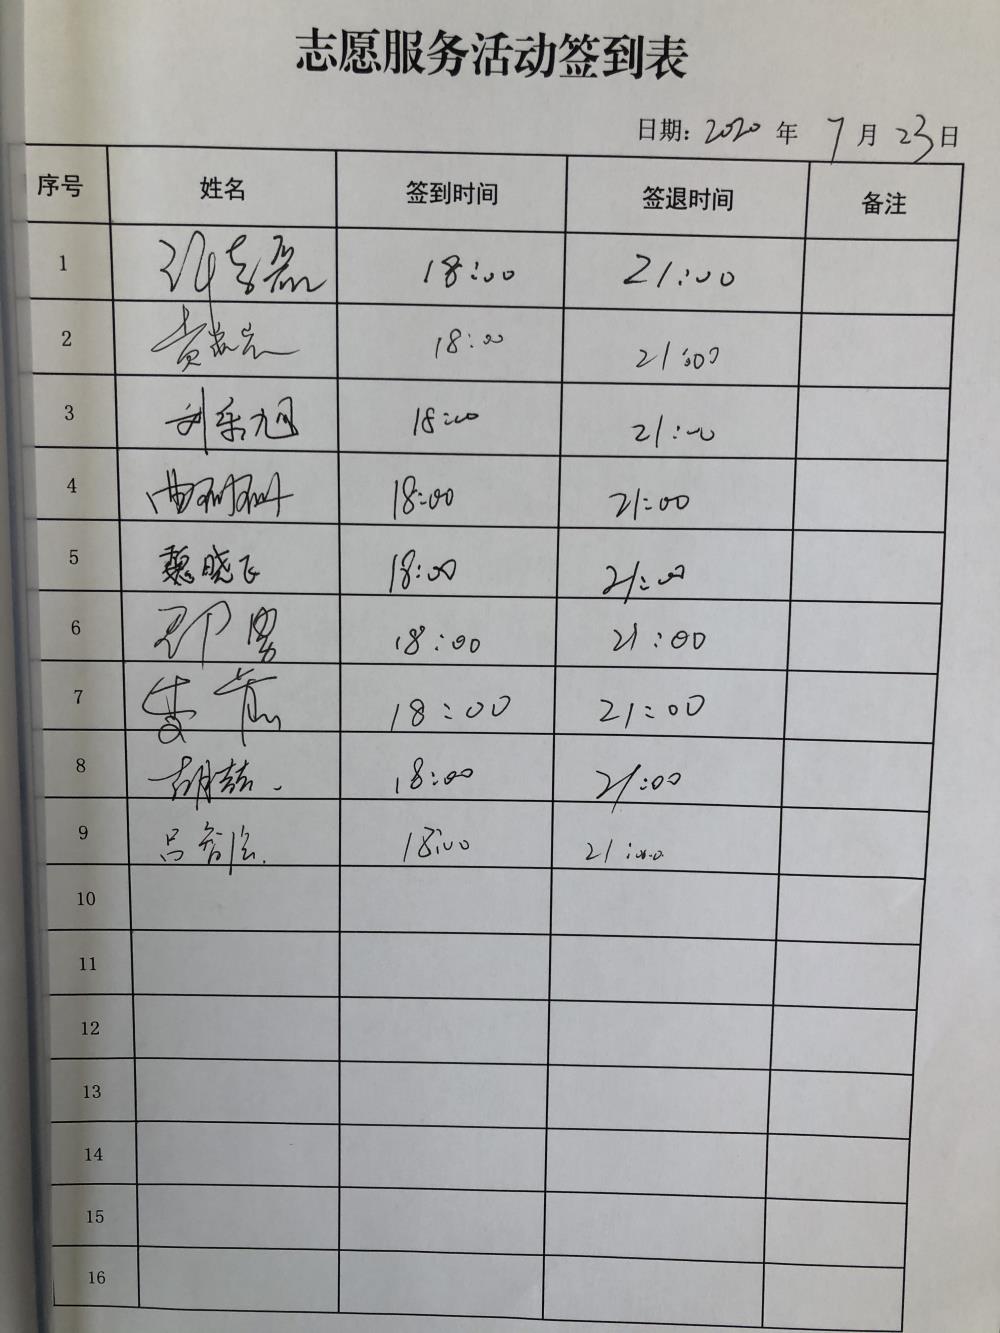 志愿服务活动签到表
日期: 2020 年 7 月 23 日
序号 姓名 签到时间 签退时间 备注
1 18:00 21:00
2 18:00 21:00
3 18:00 21:00
4 曲珊珊 18:00 21:00
5 魏晓飞 18:00 21:00
6 邓男 18:00 21:00
7 18:00 21:00
8 胡喆 18:00 21:00
9 18:00 21:00
10
11
12
13
14
15
16